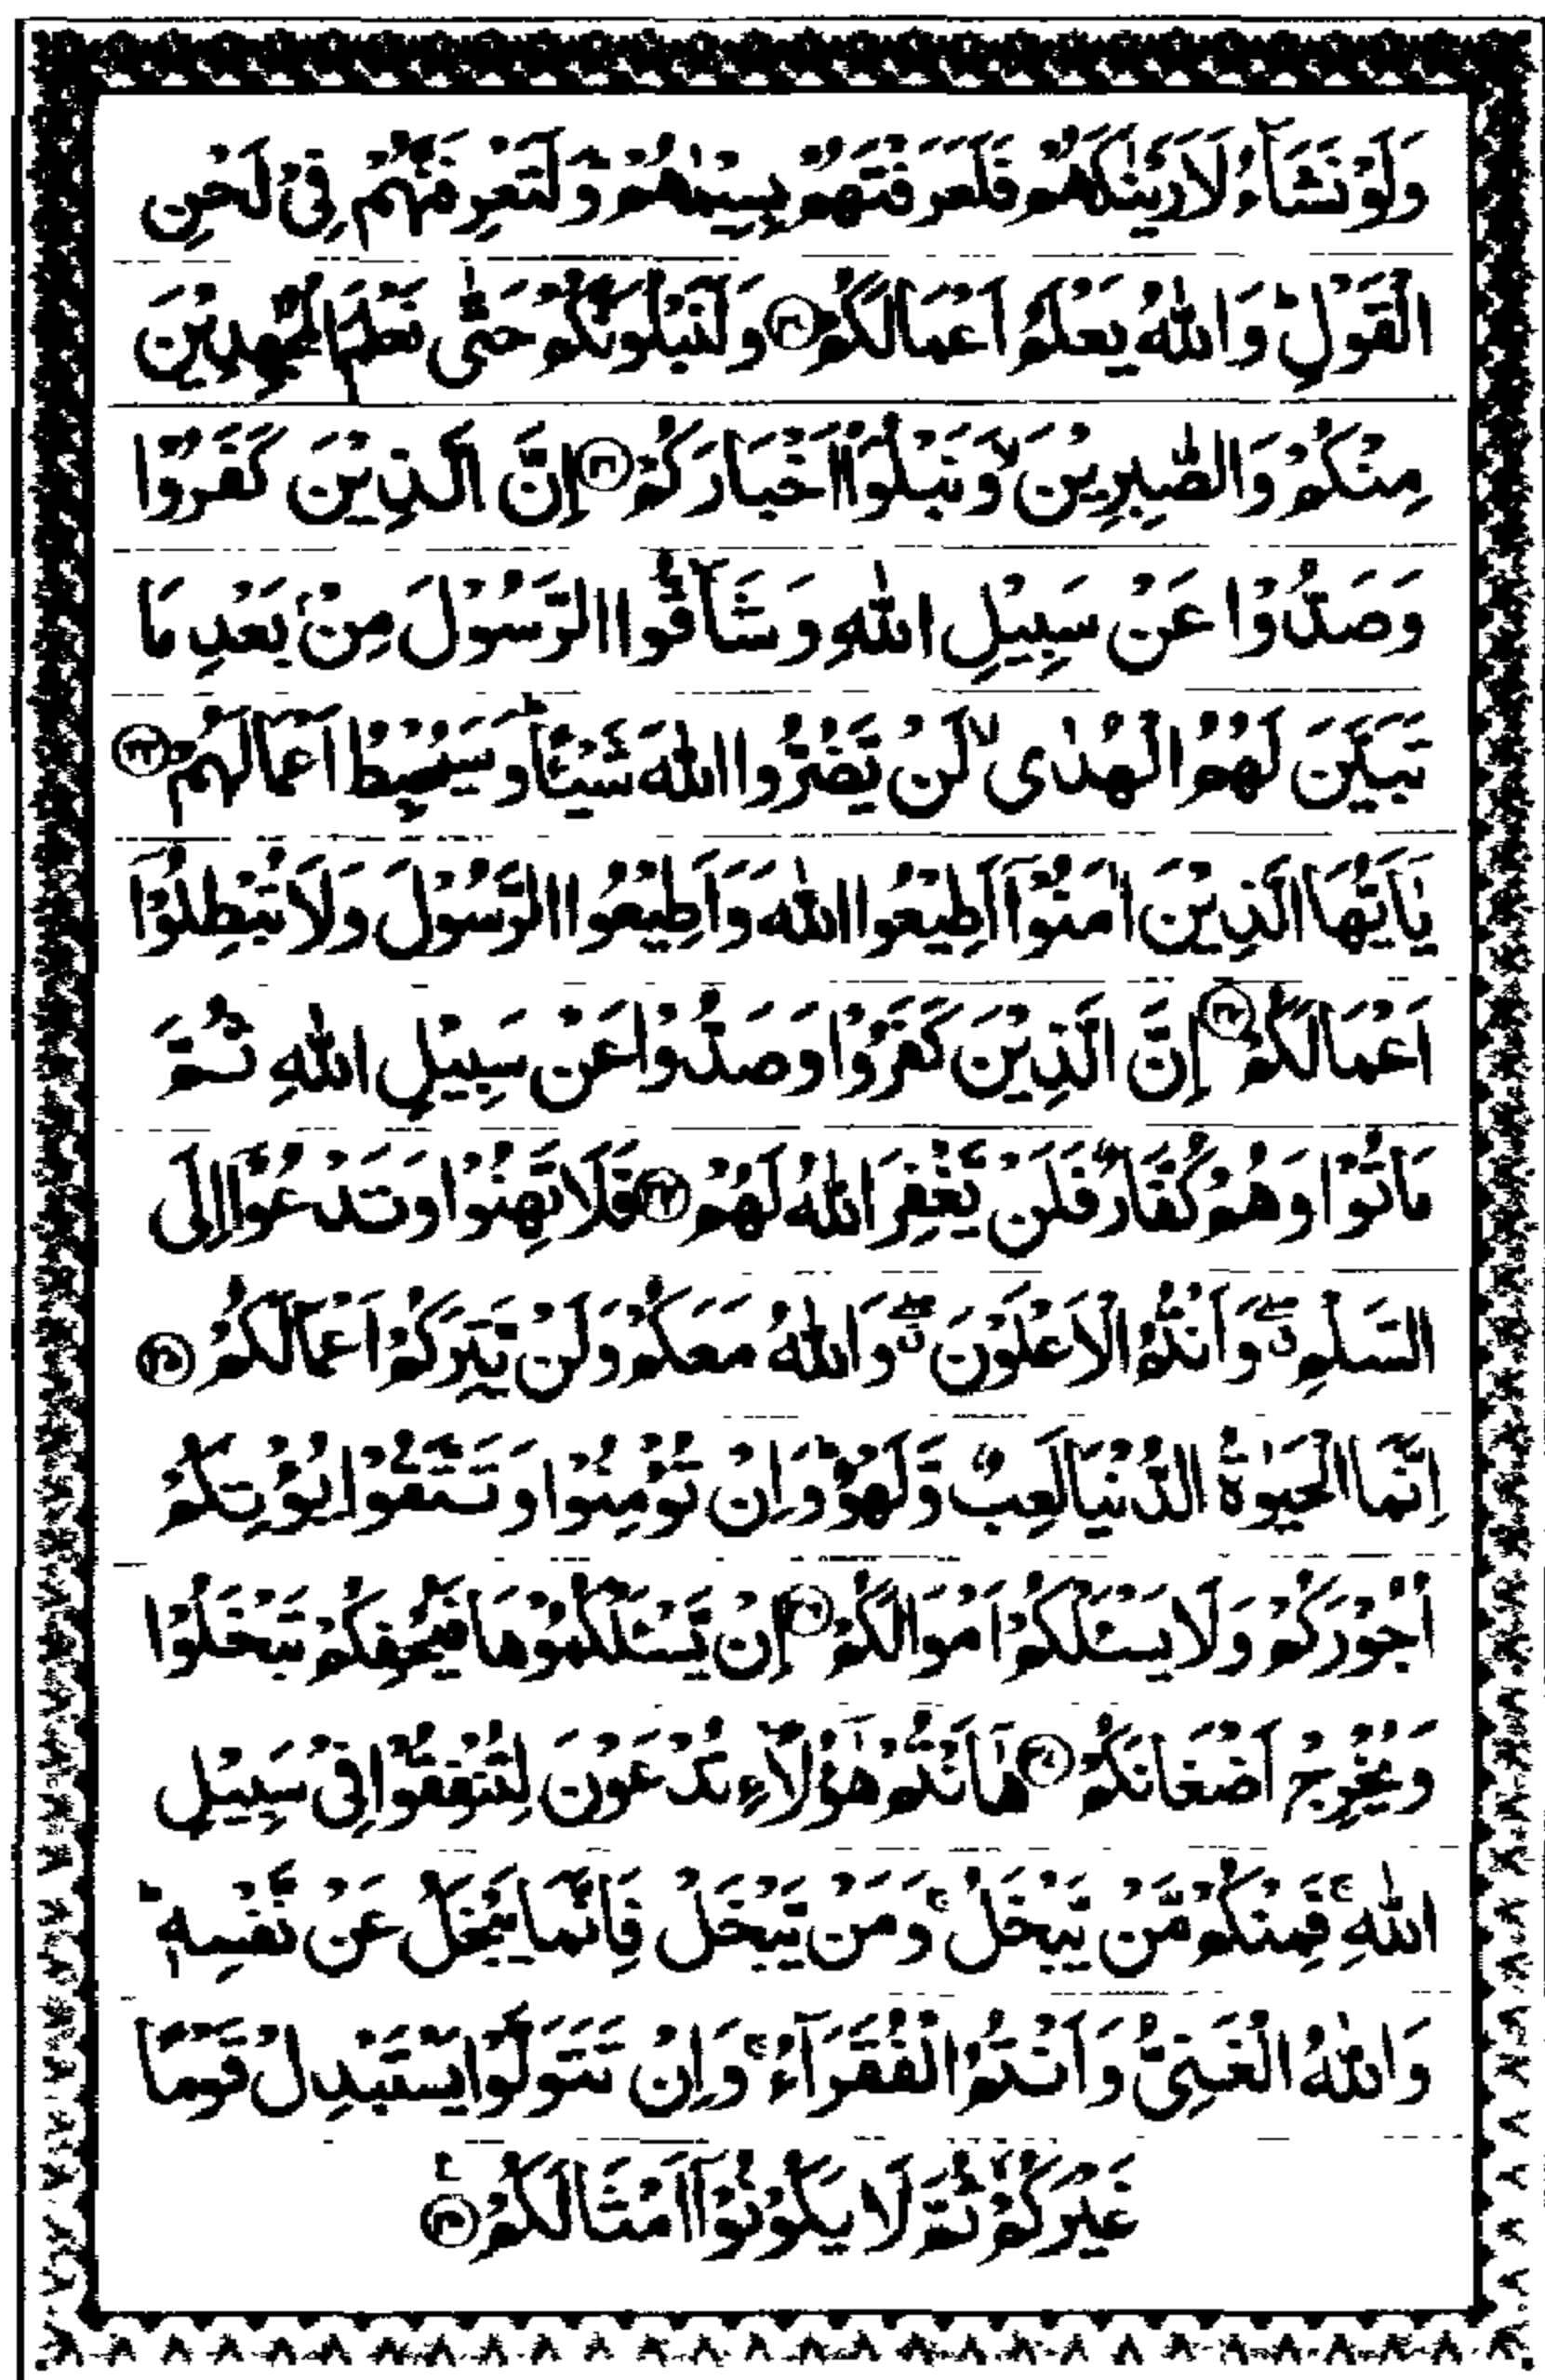 وَلَوْ نَشَآءُ لَاَرَيْنٰكَهُمْ فَلَعَرَفْتَهُمْ بِسِيْمٰهُمْ ؕ وَلَتَعْرِفَنَّهُمْ فِيْ لَحْنِ
الْقَوْلِ ؕ وَاللّٰهُ يَعْلَمُ اَعْمَالَكُمْ ﴿۳۰﴾ وَلَنَبْلُوَنَّكُمْ حَتّٰى نَعْلَمَ الْمُجٰهِدِيْنَ
مِنْكُمْ وَالصّٰبِرِيْنَ ۙ وَنَبْلُوَا۟ اَخْبَارَكُمْ ﴿۳۱﴾ اِنَّ الَّذِيْنَ كَفَرُوْا
وَصَدُّوْا عَنْ سَبِيْلِ اللّٰهِ وَشَآقُّوا الرَّسُوْلَ مِنْۢ بَعْدِ مَا
تَبَيَّنَ لَهُمُ الْهُدٰى ۙ لَنْ يَّضُرُّوا اللّٰهَ شَيْـًٔا ؕ وَسَيُحْبِطُ اَعْمَالَهُمْ ﴿۳۲﴾
يٰۤاَيُّهَا الَّذِيْنَ اٰمَنُوْۤا اَطِيْعُوا اللّٰهَ وَاَطِيْعُوا الرَّسُوْلَ وَلَا تُبْطِلُوْۤا
اَعْمَالَكُمْ ﴿۳۳﴾ اِنَّ الَّذِيْنَ كَفَرُوْا وَصَدُّوْا عَنْ سَبِيْلِ اللّٰهِ ثُمَّ
مَاتُوْا وَهُمْ كُفَّارٌ فَلَنْ يَّغْفِرَ اللّٰهُ لَهُمْ ﴿۳۴﴾ فَلَا تَهِنُوْا وَتَدْعُوْۤا اِلَى
السَّلْمِ ۖۗ وَاَنْتُمُ الْاَعْلَوْنَ ۖۗ وَاللّٰهُ مَعَكُمْ وَلَنْ يَّتِرَكُمْ اَعْمَالَكُمْ ﴿۳۵﴾
اِنَّمَا الْحَيٰوةُ الدُّنْيَا لَعِبٌ وَّلَهْوٌ ؕ وَاِنْ تُؤْمِنُوْا وَتَتَّقُوْا يُؤْتِكُمْ
اُجُوْرَكُمْ وَلَا يَسْـَٔلْكُمْ اَمْوَالَكُمْ ﴿۳۶﴾ اِنْ يَّسْـَٔلْكُمُوْهَا فَيُحْفِكُمْ تَبْخَلُوْا
وَيُخْرِجْ اَضْغَانَكُمْ ﴿۳۷﴾ هٰۤاَنْتُمْ هٰۤؤُلَآءِ تُدْعَوْنَ لِتُنْفِقُوْا فِيْ سَبِيْلِ
اللّٰهِ ۚ فَمِنْكُمْ مَّنْ يَّبْخَلُ ۚ وَمَنْ يَّبْخَلْ فَاِنَّمَا يَبْخَلُ عَنْ نَّفْسِهٖ ؕ
وَاللّٰهُ الْغَنِيُّ وَاَنْتُمُ الْفُقَرَآءُ ۚ وَاِنْ تَتَوَلَّوْا يَسْتَبْدِلْ قَوْمًا
غَيْرَكُمْ ۙ ثُمَّ لَا يَكُوْنُوْۤا اَمْثَالَكُمْ ﴿۳۸﴾